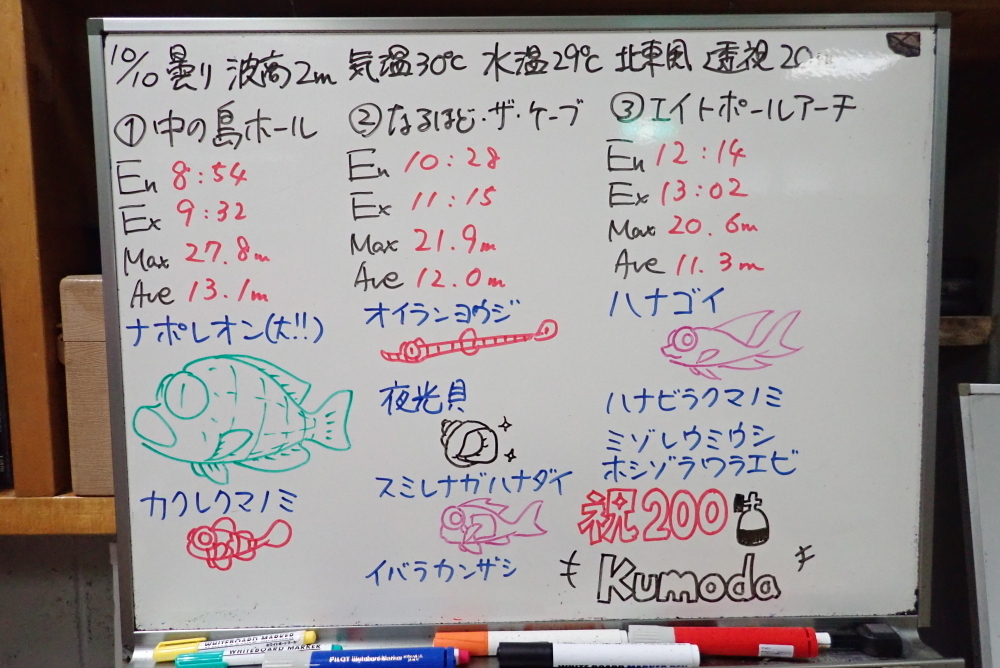 10/10 曇り 波高2m 気温30℃ 水温29℃ 北東風 透視20m
①中の島ホール
En 8:54
Ex 9:32
Max 27.8m
Ave 13.1m
ナポレオン(大!!)
カクレクマノミ
②なるほど・ザ・ケーブ
En 10:28
Ex 11:15
Max 21.9m
Ave 12.0m
オイランヨウジ
夜光貝
スミレナガハナダイ
イバラカンザシ
③エイトポールアーチ
En 12:14
Ex 13:02
Max 20.6m
Ave 11.3m
ハナゴイ
ハナビラクマノミ
ミゾレウミウシ
ホシゾラワラエビ
祝200
Kumoda
WHITEBOARD MARKER
WHITEBOARD MARKER
PILOT Whiteboard Marker
WHITEBOARD MARKER